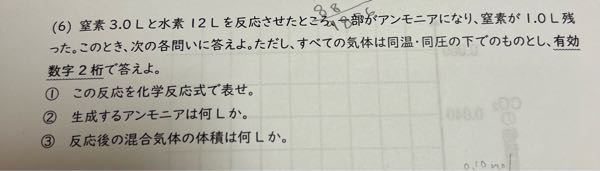 (6) 窒素 3.0 L と水素 12 L を反応させたところ、一部がアンモニアになり、窒素が 1.0 L 残
った。このとき、次の各問いに答えよ。ただし、すべての気体は同温・同圧の下でのものとし、有効
数字2桁で答えよ。
① この反応を化学反応式で表せ。
② 生成するアンモニアは何 L か。
③ 反応後の混合気体の体積は何 L か。